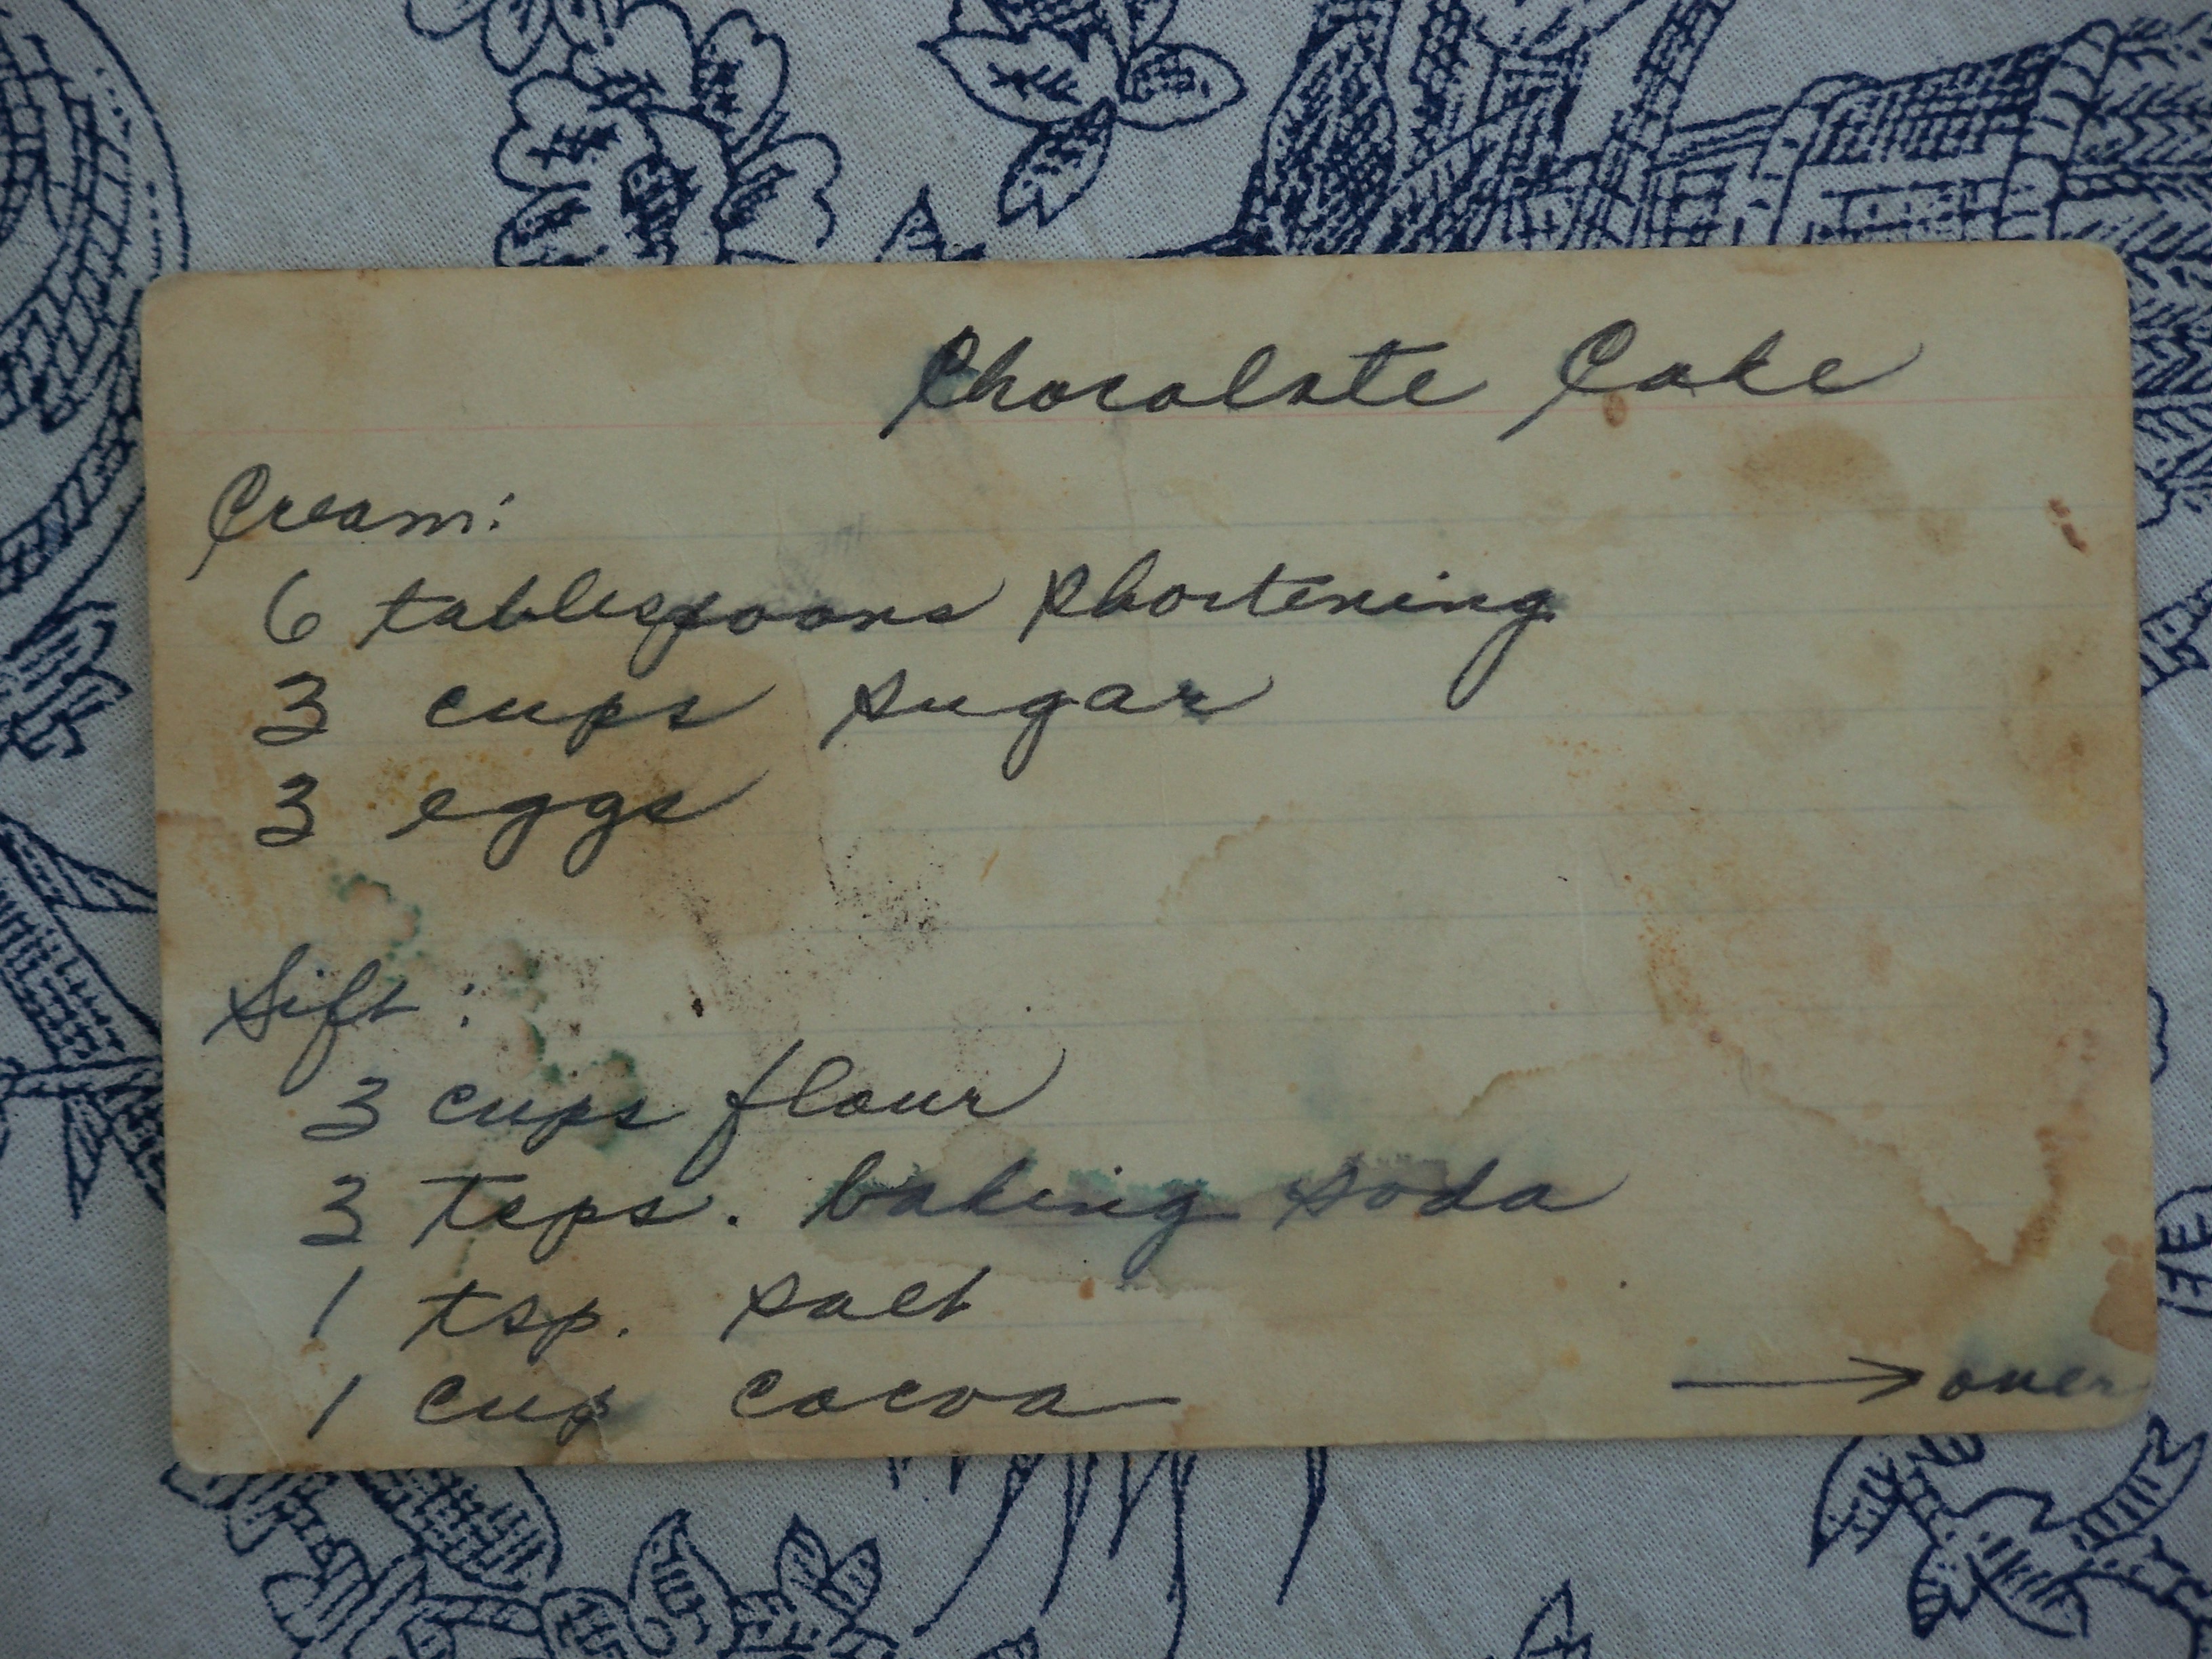 Chocolate Cake
Cream:
6 tablespoons shortening
3 cups sugar
3 eggs
Sift:
3 cups flour
3 tsps. baking soda
1 tsp. salt
1 cup cocoa
→ over